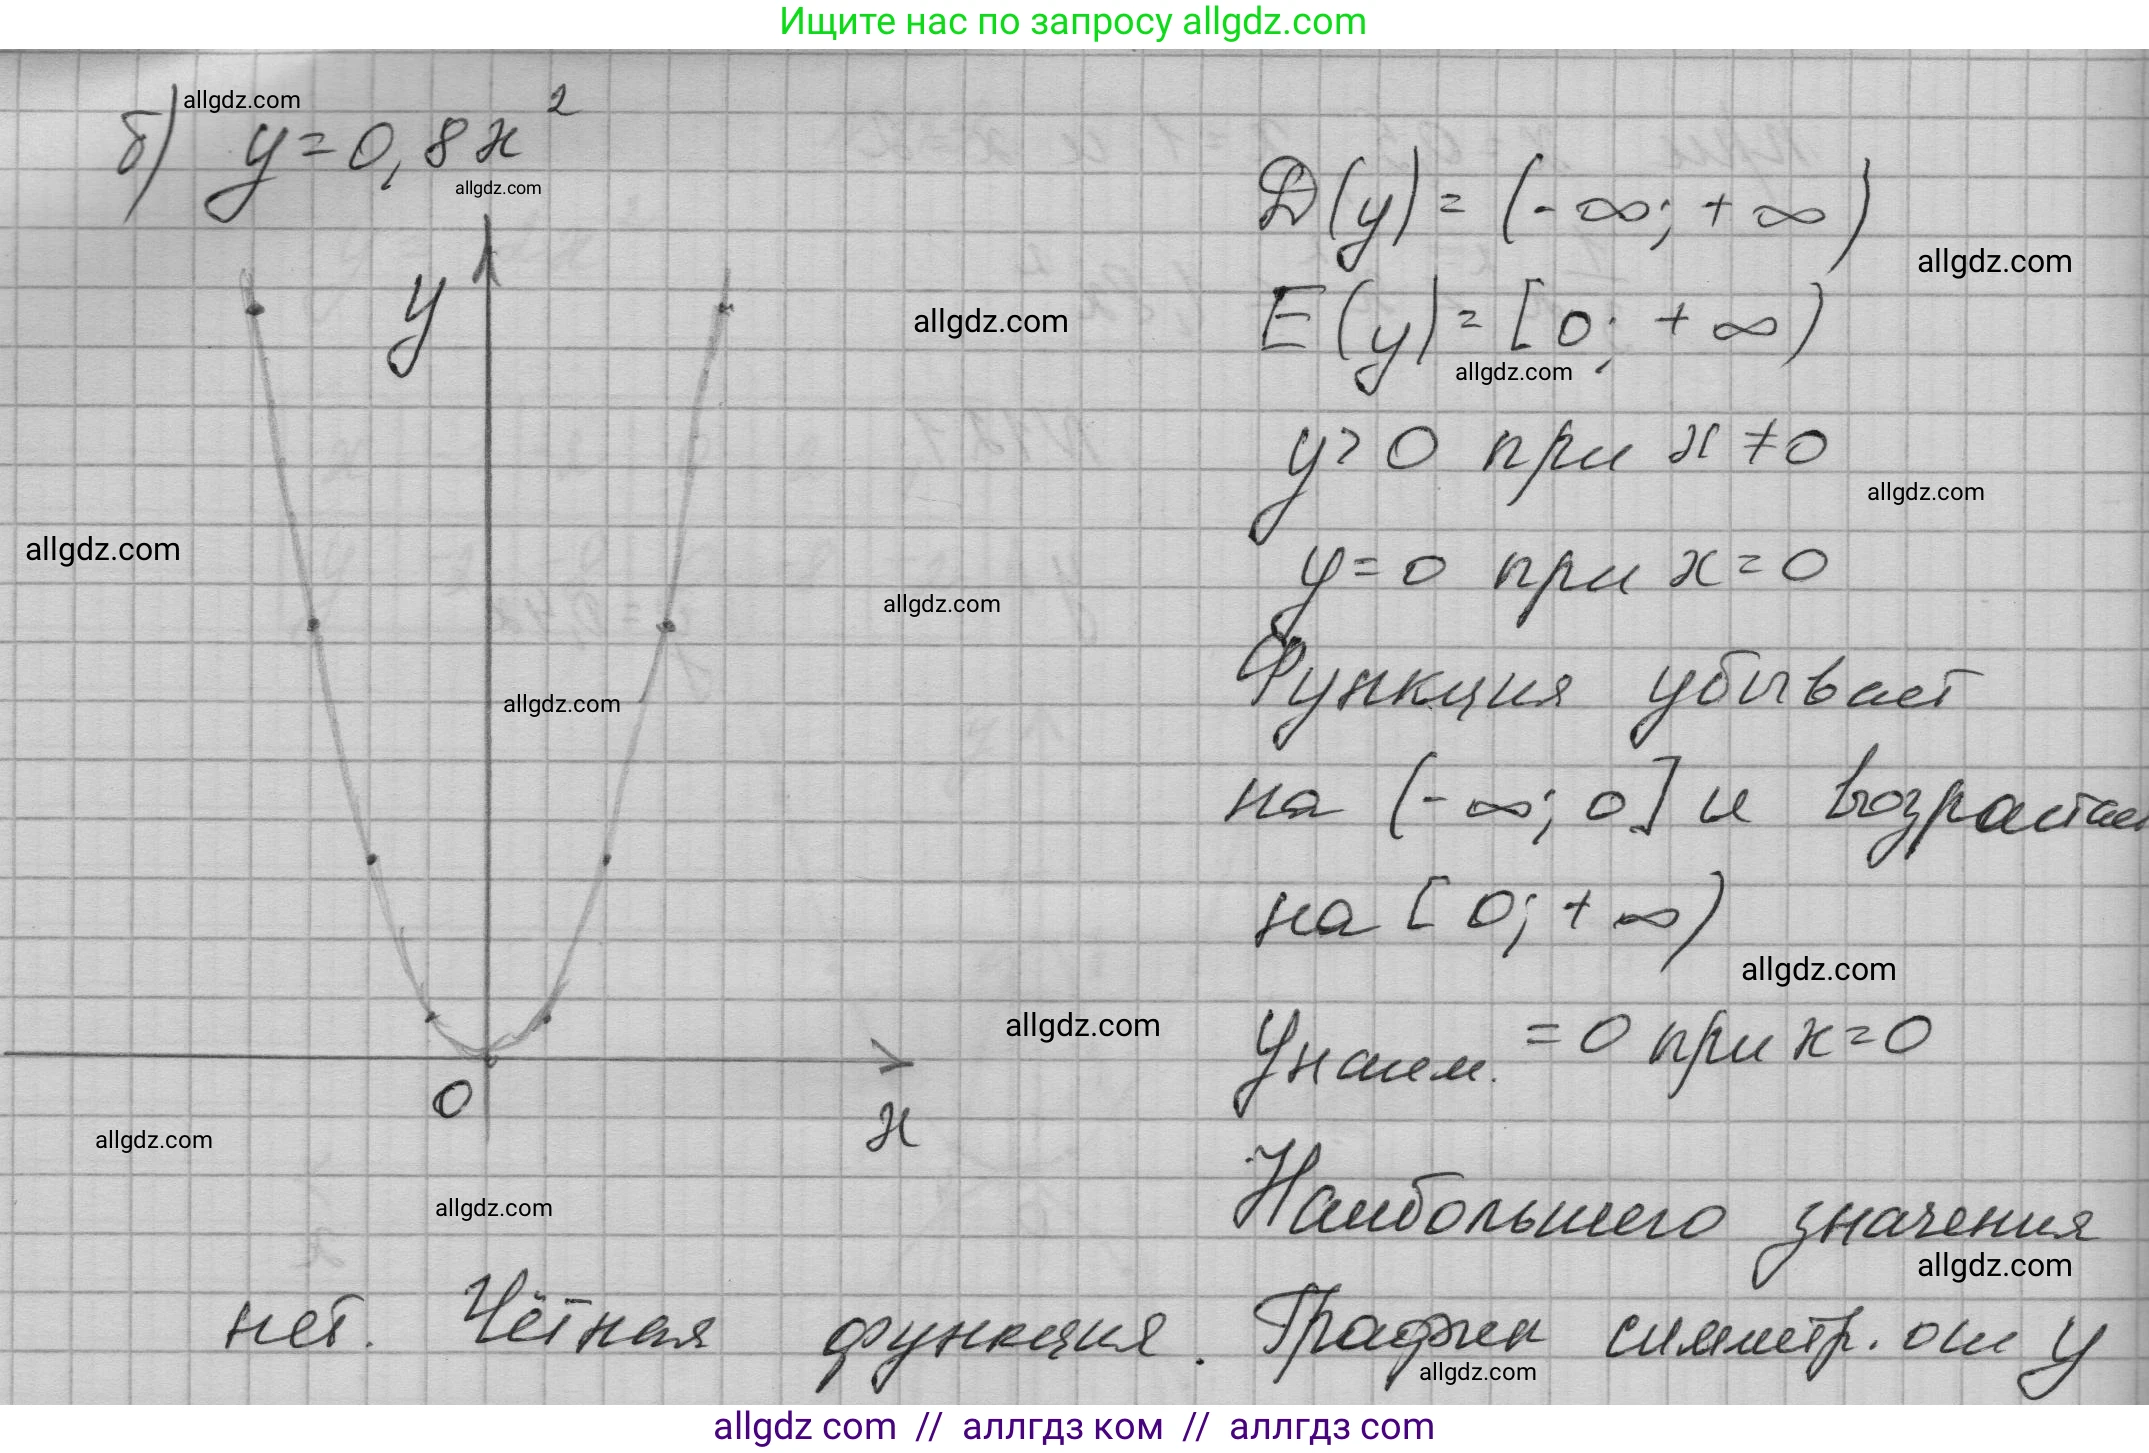 Ищите нас по запросу allgdz.com
б) y=0,8x²
allgdz.com
allgdz.com
D(y)=(-∞;+∞)
allgdz.com
E(y)=[0;+∞)
allgdz.com
allgdz.com
y
y>0 при x≠0
allgdz.com
allgdz.com
y=0 при x=0
allgdz.com
Функция убывает
allgdz.com
на (-∞;0] и возрастает
на [0;+∞)
allgdz.com
allgdz.com
yнаим.=0 при x=0
0
x
allgdz.com
Наибольшего значения
allgdz.com
allgdz.com
нет. Чётная функция. График симметр. оси y
allgdz.com
allgdz com // аллгдз ком // аллгдз com